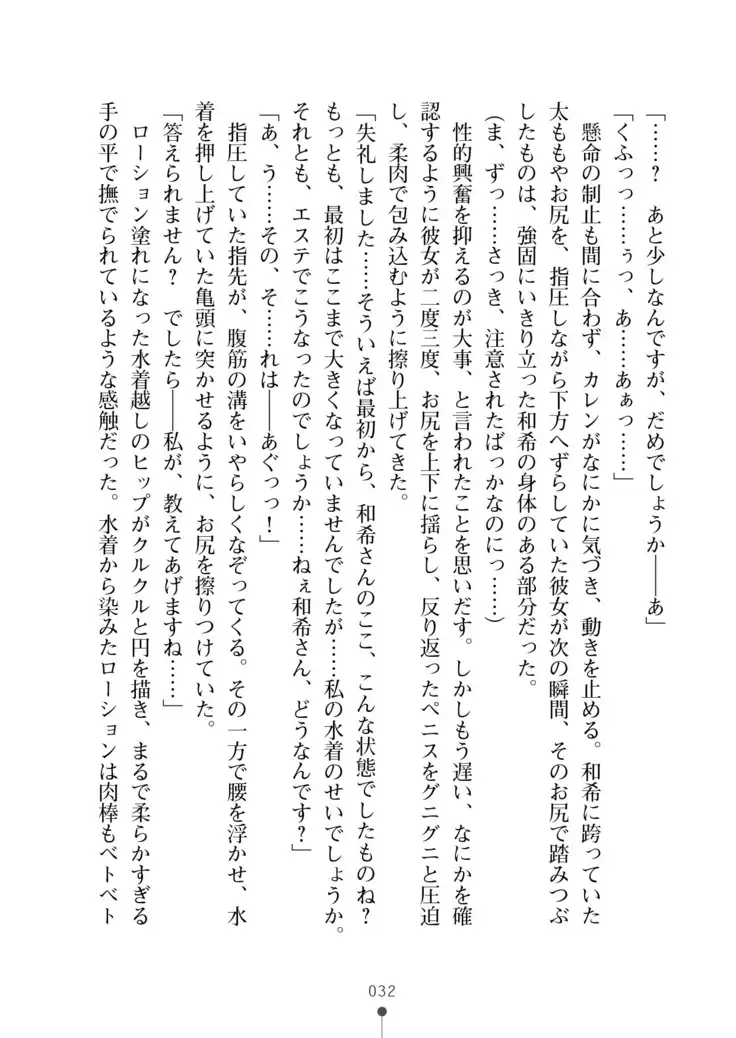 「……？　あと少しなんですが、だめでしょうか――あ」
「くふっっ……ぅっ、あ……あぁっ……」
　懸命の制止も間に合わず、カレンがなにかに気づき、動きを止める。和希に跨っていた
太ももやお尻を、指圧しながら下方へずらしていた彼女が次の瞬間、そのお尻で踏みつぶ
したものは、強固にいきり立った和希の身体のある部分だった。
（ま、ずっ……さっき、注意されたばっかなのにっ……）
　性的興奮を抑えるのが大事、と言われたことを思いだす。しかしもう遅い、なにかを確
認するように彼女が二度三度、お尻を上下に揺らし、反り返ったペニスをグニグニと圧迫
し、柔肉で包み込むように擦り上げてきた。
「失礼しました……そういえば最初から、和希さんのここ、こんな状態でしたものね？
もっとも、最初はここまで大きくなっていませんでしたが……私の水着のせいでしょうか。
それとも、エステでこうなったのでしょうか……ねぇ和希さん、どうなんです？」
「あ、う……その、そ……れは――あぐっっ！」
　指圧していた指先が、腹筋の溝をいやらしくなぞってくる。その一方で腰を浮かせ、水
着を押し上げていた亀頭に突かせるように、お尻を擦りつけていた。
「答えられません？　でしたら――私が、教えてあげますね……」
　ローション塗れになった水着越しのヒップがクルクルと円を描き、まるで柔らかすぎる
手の平で撫でられているような感触だった。水着から染みたローションは肉棒もベトベト
032